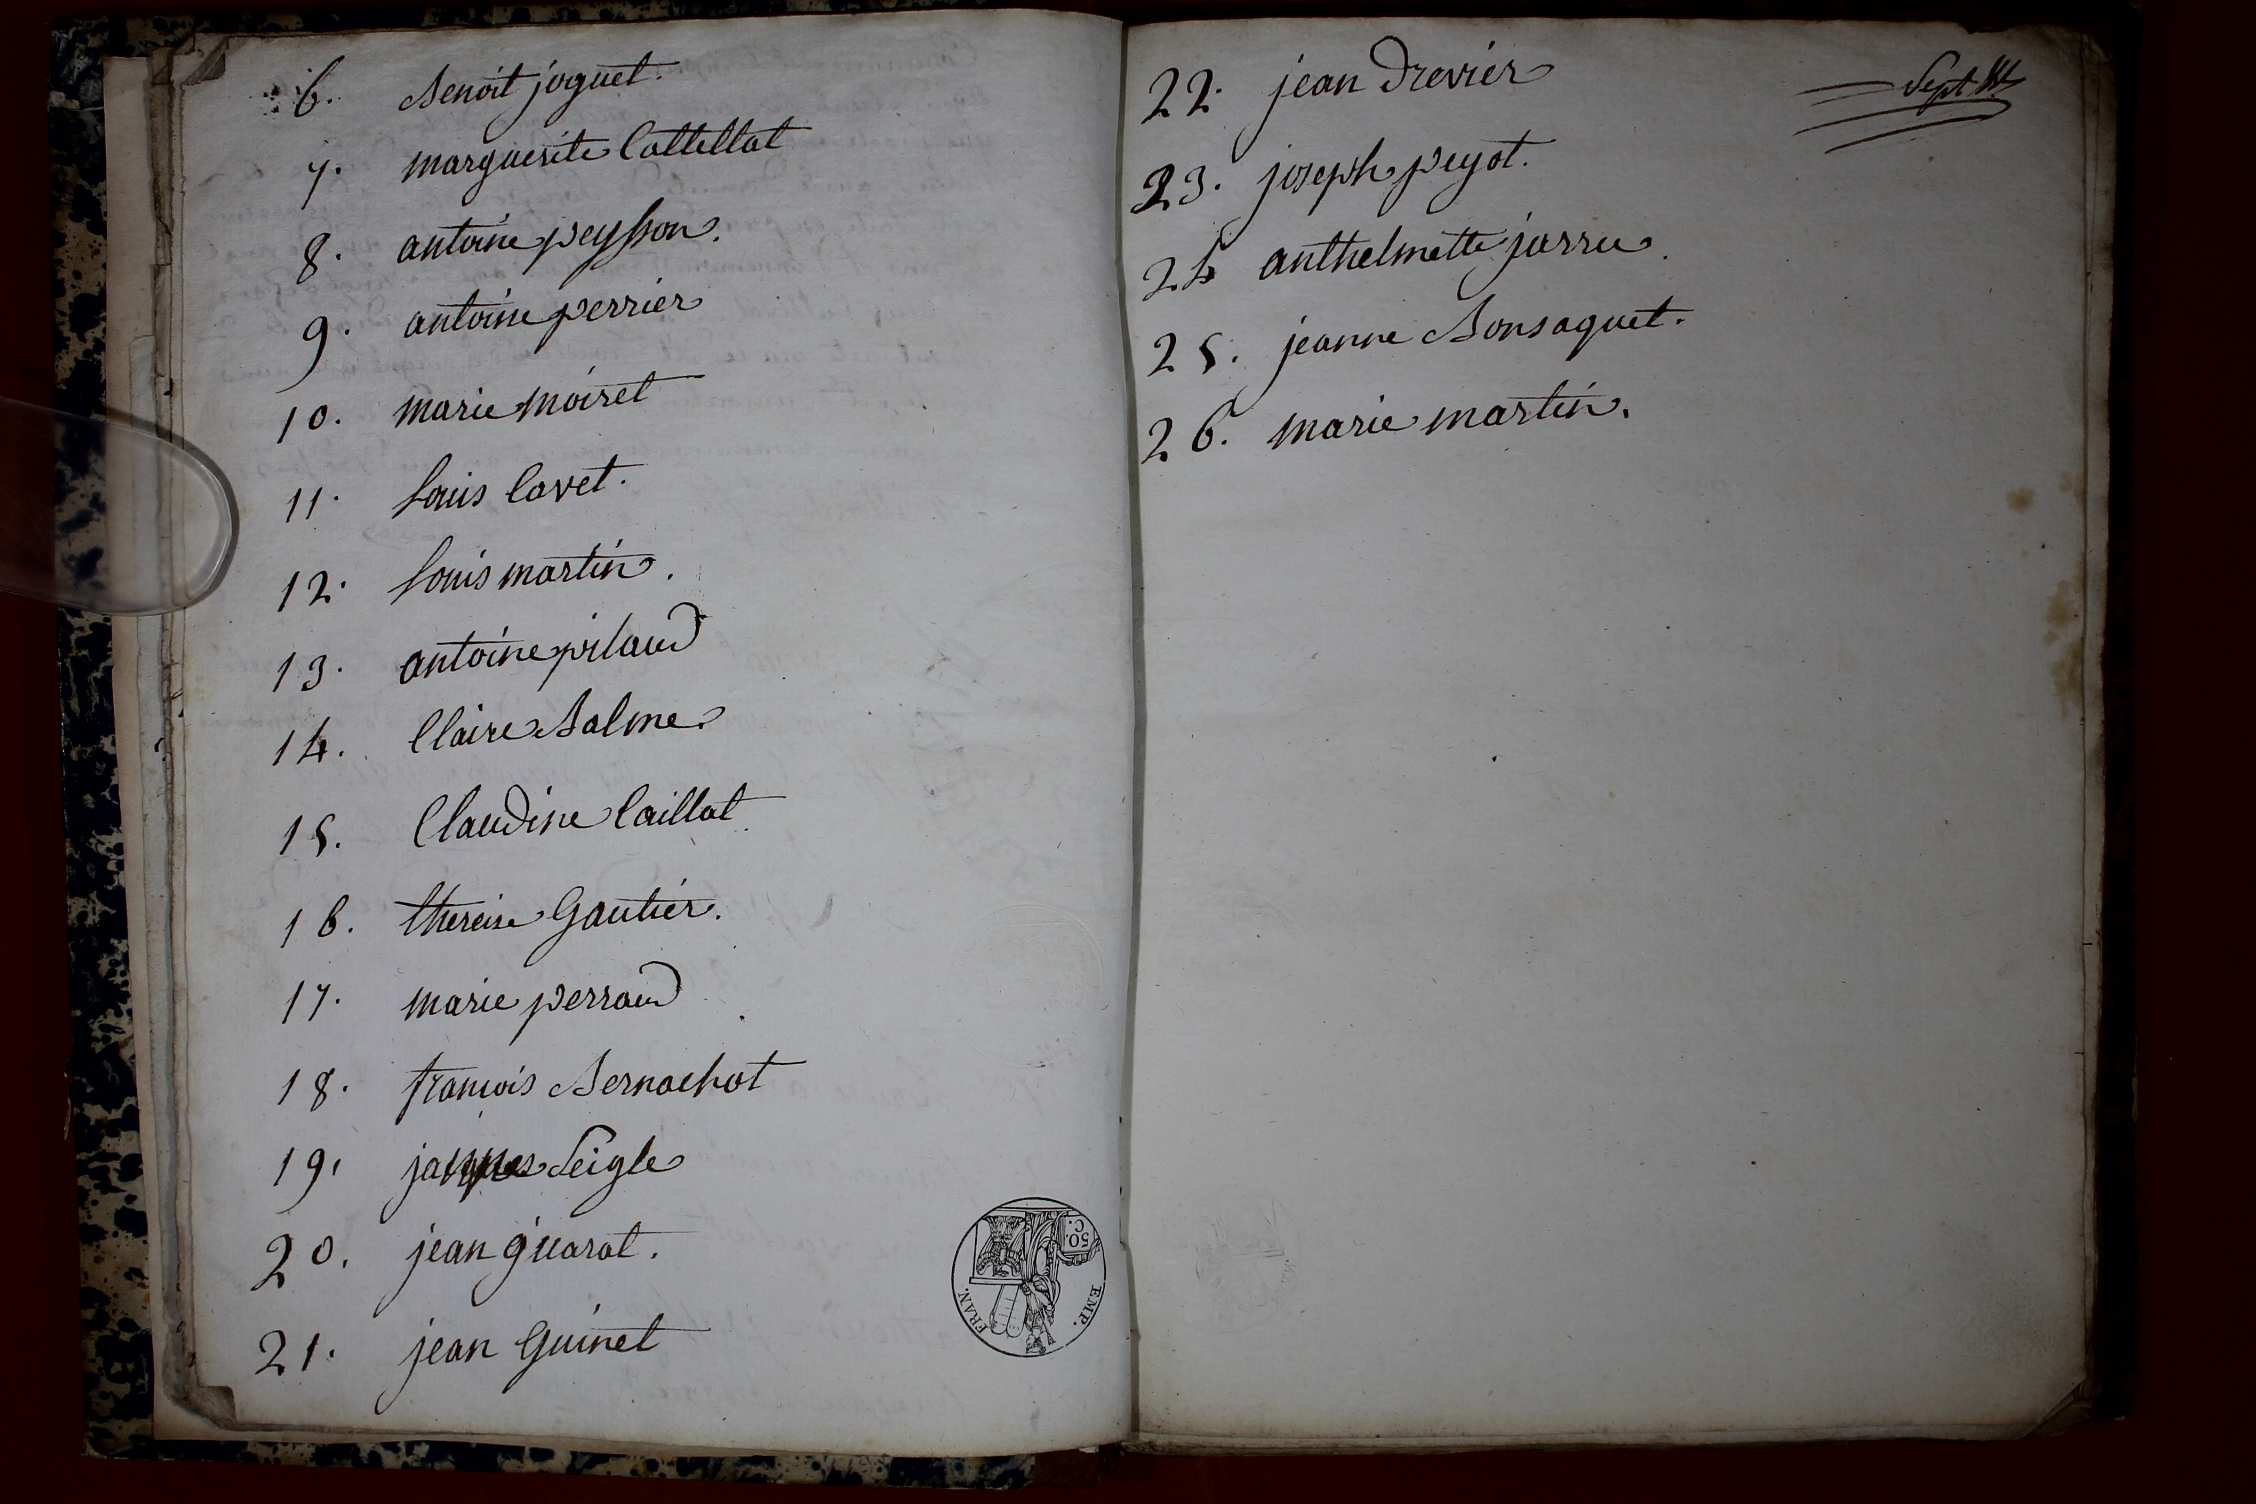 6. Benoit joguet.
7. marguerite Cattellat
8. antoine peysson.
9. antoine perrier
10. marie moiret
11. Louis Cavet.
12. Louis martin.
13. antoine pilaud
14. Claire Balme
15. Claudine Caillat
16. thereise Gautier.
17. marie perraud
18. francois Bernachot
19. jacques Seigle
20. jean guarat.
21. jean Guinet
50. C.
EMP. FRAN.
Sept
22. jean Drevier
23. joseph peyot.
24 anthelmette jarru.
25. jeanne Bonsaquet.
26. marie martin.